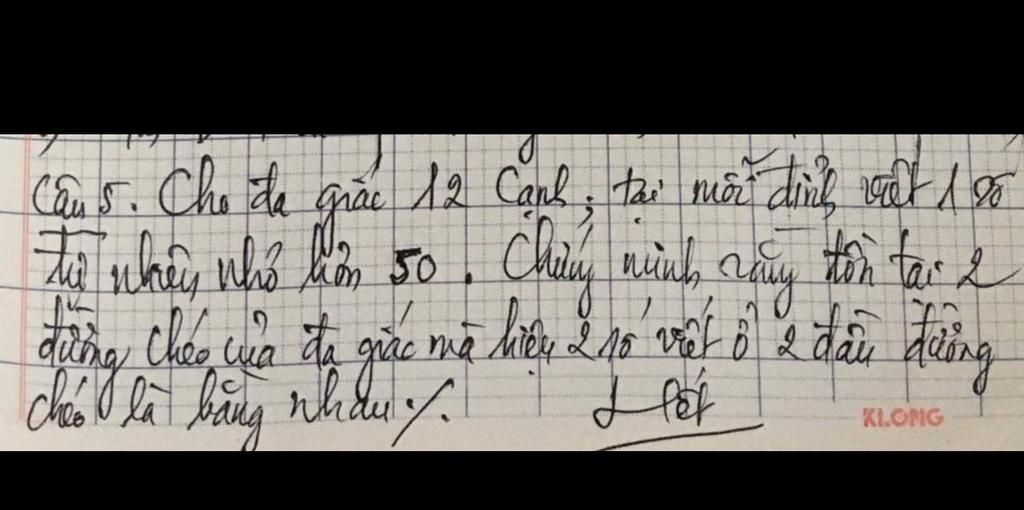 Câu 5. Cho đa giác 12 cạnh; tại mỗi đỉnh viết 1 số
tự nhiên nhỏ hơn 50. Chứng minh rằng tồn tại 2
đường chéo của đa giác mà hiệu 2 số viết ở 2 đầu đường
chéo là bằng nhau ./.
Hết
KLONG